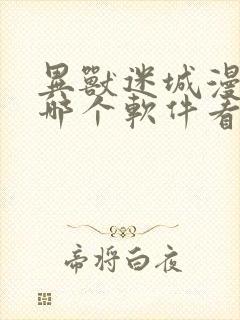 異獸迷城漫
哪个軟件看
帝将白夜